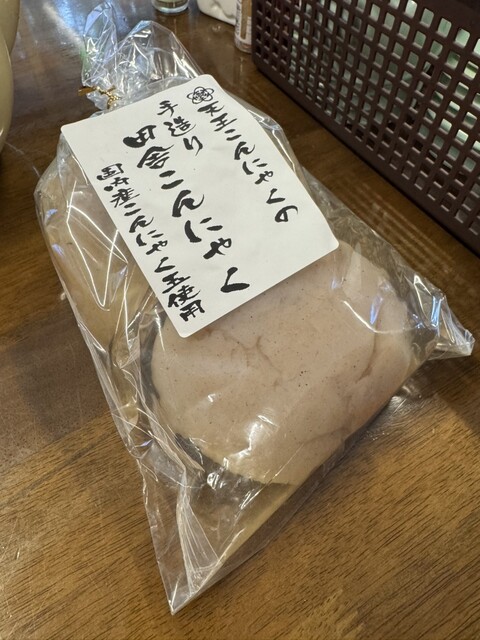 天王こんにゃくの
手造り
田舎こんにゃく
国内産こんにゃく玉使用